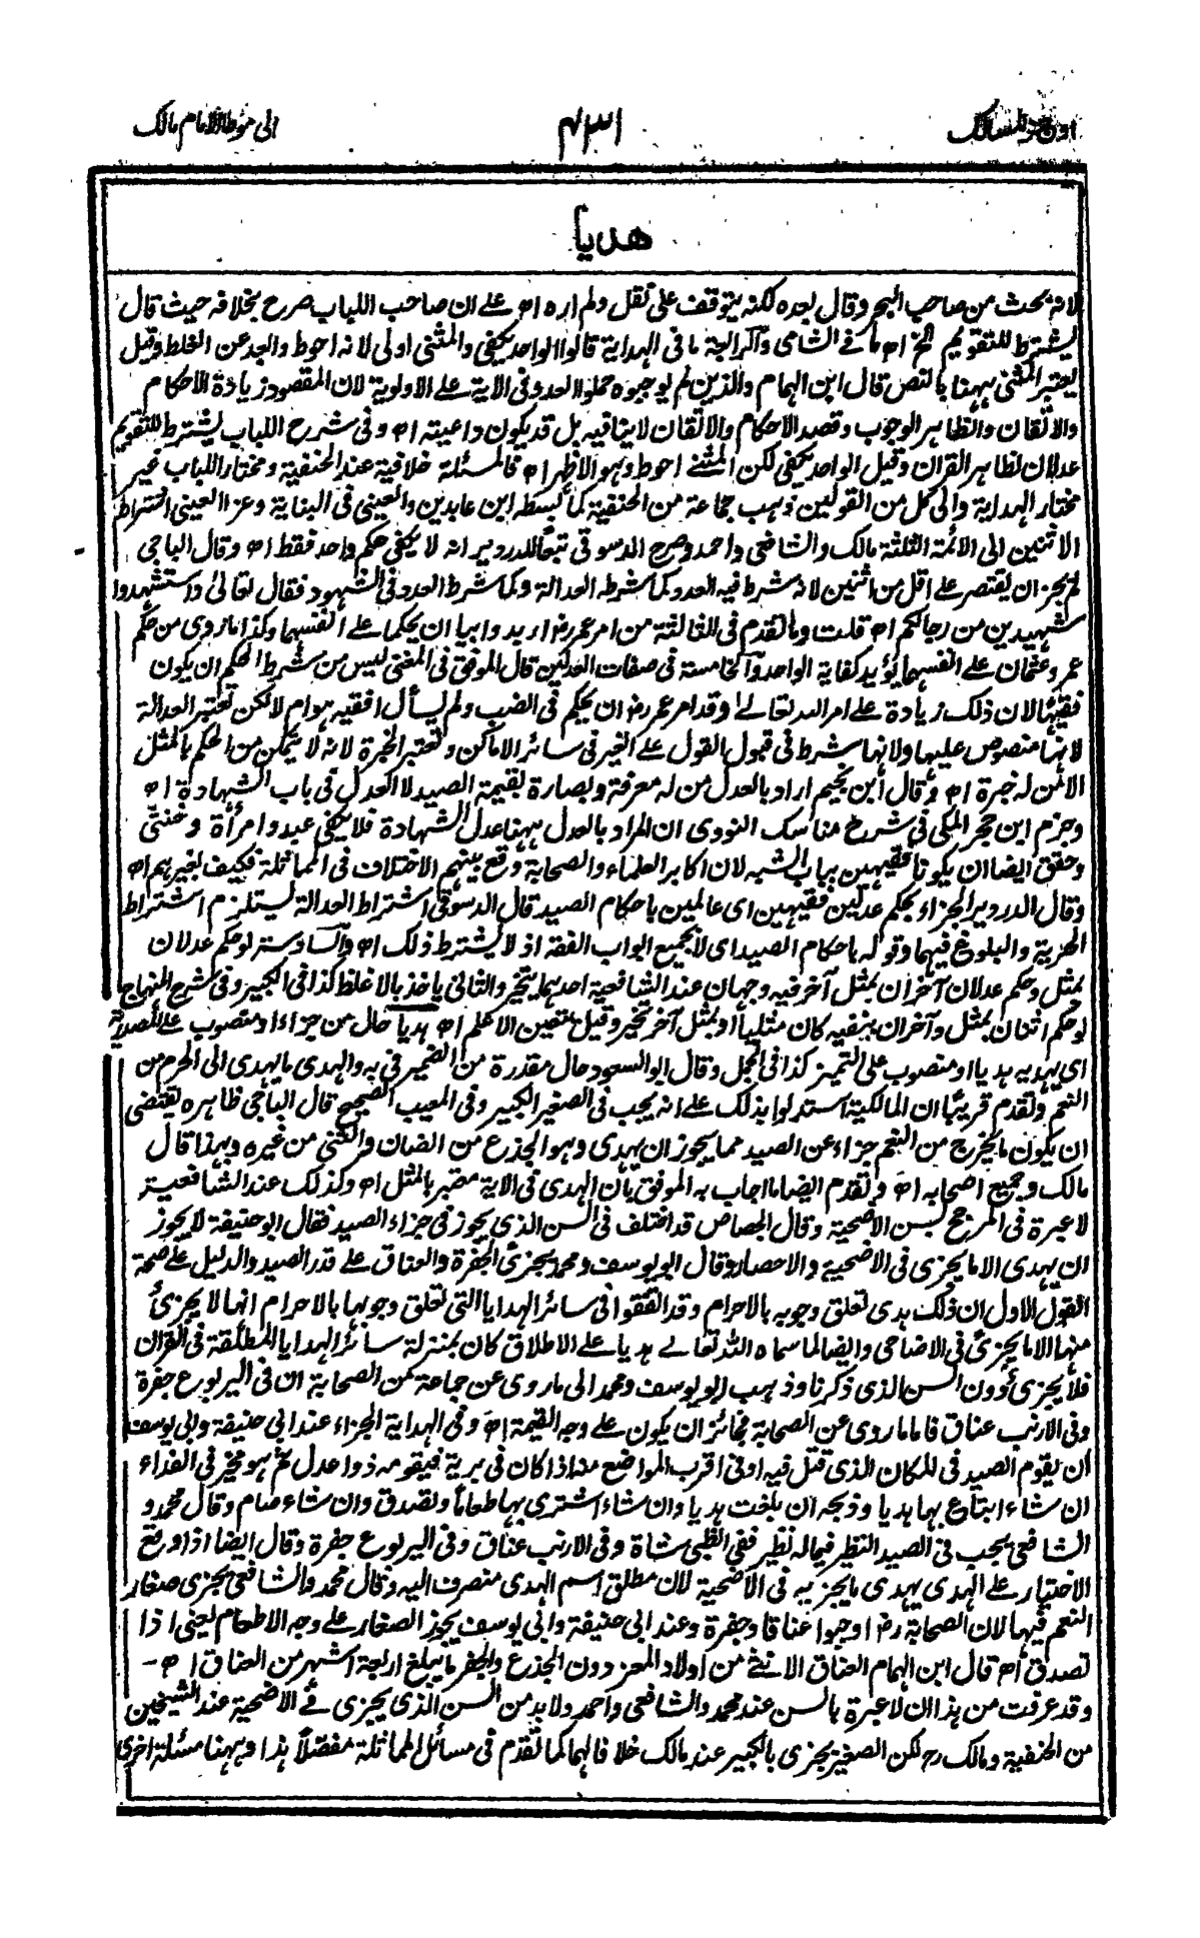 اوجز المسالك
٤٣١
الى موطا الامام مالك
هديا
لانه بحث من صاحب البحر وقال بعده لكنه يتوقف على نقل ولم اره اھ على ان صاحب اللباب صرح بخلافه حيث قال
يشترط للتقويم الخ اھ ما فى الشامى والرابعة ما فى الهداية قالوا الواحد يكفى والمثنى اولى لانه احوط وابعد عن الغلط وقيل
يعتبر المثنى ههنا بالنص قال ابن الهمام والذين لم يوجبوه حملوا العدد فى الاية على الاولوية لان المقصود زيادة الاحكام
والاتقان والظاهر الوجوب وقصد الاحكام والاتقان لا ينافيه بل قد يكون داعيته اھ وفى شرح اللباب يشترط للتقويم
عدلان لظاهر القران وقيل الواحد يكفى لكن المثنى احوط وهو الاظهر اھ فالمسئلة خلافية عند الحنفية ومختار اللباب غير
مختار الهداية والى كل من القولين ذهب جماعة من الحنفية كما بسطه ابن عابدين والعينى فى البناية وعزا العينى اشتراط
الاثنين الى الائمة الثلثة مالك والشافعى واحمد وصرح الدسوقى تبعا للدردير انه لا يكفى حكم واحد فقط اھ وقال الباجى
لم يجز ان يقتصر على اقل من اثنين لانه شرط فيه العدد كما شرط العدالة وكما شرط العدد فى الشهود فقال تعالىٰ واستشهدوا
شهيدين من رجالكم اھ قلت وما تقدم فى الثالثة من امر عمر رضـ اربد وابيا ان يحكما على انفسهما وكذا ما روى من حكم
عمر وعثمان على انفسهما يؤيد كفاية الواحد والخامسة فى صفات العدلين قال الموفق فى المغنى ليس من شرط الحكم ان يكون
فقيها لان ذلك زيادة على امر الله تعالى وقد امر عمر رضـ ان يحكم فى الضب ولم يسأل افقيه هو ام لا لكن تعتبر العدالة
لانها منصوص عليها ولانها شرط فى قبول القول على الغير فى سائر الاماكن وتعتبر الخبرة لانه لا يتمكن من الحكم بالمثل
الا من له خبرة اھ وقال ابن نجيم اراد بالعدل من له معرفة وبصارة بقيمة الصيد لا العدل فى باب الشهادة اھ
وجزم ابن حجر المكى فى شرح مناسك النووى ان المراد بالعدل ههنا عدل الشهادة فلا يكفى عبد وامرأة وخنثى
وحقق ايضا ان يكونا فقيهين بباب الشبه لان اكابر العلماء والصحابة وقع بينهم الاختلاف فى المماثلة فكيف بغيرهم اھ
وقال الدردير الجزاء بحكم عدلين فقيهين اى عالمين باحكام الصيد قال الدسوقى اشتراط العدالة يستلزم اشتراط
الحرية والبلوغ فيهما وقوله باحكام الصيد اى لا بجميع ابواب الفقه اذ لا يشترط ذلك اھ والسادسة لو حكم عدلان
بمثل وحكم عدلان آخران بمثل آخر فيه وجهان عند الشافعية احدهما يتخير والثانى ياخذ بالاغلظ كذا فى الكبير وفى شرح المنهاج
لو حكم اثنان بمثل وآخران بنفيه كان مثليا او بمثل آخر تخير وقيل يتعين الاعلم اھ هديا حال من جزاء او منصوب على المصدرية
اى يهديه هديا او منصوب على التميز كذا فى الجمل وقال ابو السعود حال مقدرة من الضمير فى به والهدى ما يهدى الى الحرم من
النعم وتقدم قريبا ان المالكية استدلوا بذلك على انه يجب فى الصغير الكبير وفى المعيب الصحيح قال الباجى ظاهره يقتضى
ان يكون ما يخرج من النعم جزاء عن الصيد مما يجوز ان يهدى وهو الجذع من الضان والثنى من غيره وبهذا قال
مالك وجميع اصحابه اھ وتقدم ايضا ما اجاب به الموفق بان الهدى فى الاية مقيد بالمثل اھ وكذلك عند الشافعية
لا عبرة فى المرجح بسن الاضحية وقال الجصاص قد اختلف فى السن الذى يجوز فى جزاء الصيد فقال ابو حنيفة لا يجوز
ان يهدى الا ما يجزى فى الاضحية والاحصار وقال ابو يوسف ومحمد يجزئ الجفرة والعناق على قدر الصيد والدليل على صحة
القول الاول ان ذلك هدى تعلق وجوبه بالاحرام وقد اتفقوا فى سائر الهدايا التى تعلق وجوبها بالاحرام انها لا يجزئ
منها الا ما يجزئ فى الاضاحى وايضا لما سماه الله تعالى هديا على الاطلاق كان بمنزلة سائر الهدايا المطلقة فى القران
فلا يجزى دون السن الذى ذكرنا وذهب ابو يوسف ومحمد الى ما روى عن جماعة من الصحابة ان فى اليربوع جفرة
وفى الارنب عناق فاما ما روى عن الصحابة فجائز ان يكون على وجه القيمة اھ وفى الهداية الجزاء عند ابى حنيفة وابى يوسف
ان يقوم الصيد فى المكان الذى قتل فيه او فى اقرب المواضع منه اذا كان فى برية فيقومه ذوا عدل ثم هو مخير فى الفداء
ان شاء ابتاع بها هديا وذبحه ان بلغت هديا وان شاء اشترى بها طعاما وتصدق وان شاء صام وقال محمد و
الشافعى يجب فى الصيد النظير فيما له نظير ففى الظبى شاة وفى الارنب عناق وفى اليربوع جفرة وقال ايضا اذا وقع
الاختيار على الهدى يهدى ما يجزيه فى الاضحية لان مطلق اسم الهدى منصرف اليه وقال محمد والشافعى يجزى صغار
النعم فيها لان الصحابة رضـ اوجبوا عناقا وجفرة وعند ابى حنيفة وابى يوسف يجوز الصغار على وجه الاطعام يعنى اذا
تصدق اھ قال ابن الهمام العناق الانثى من اولاد المعز دون الجذع والجفر ما يبلغ اربعة اشهر من العناق اھ -
وقد عرفت من هذا ان لا عبرة بالسن عند محمد والشافعى واحمد ولابد من السن الذى يجزى فى الاضحية عند الشيخين
من الحنفية ومالك رح لكن الصغير يجزى بالكبير عند مالك خلافا لهما كما تقدم فى مسائل المماثلة مفصلاً هذا وههنا مسئلة اخرى